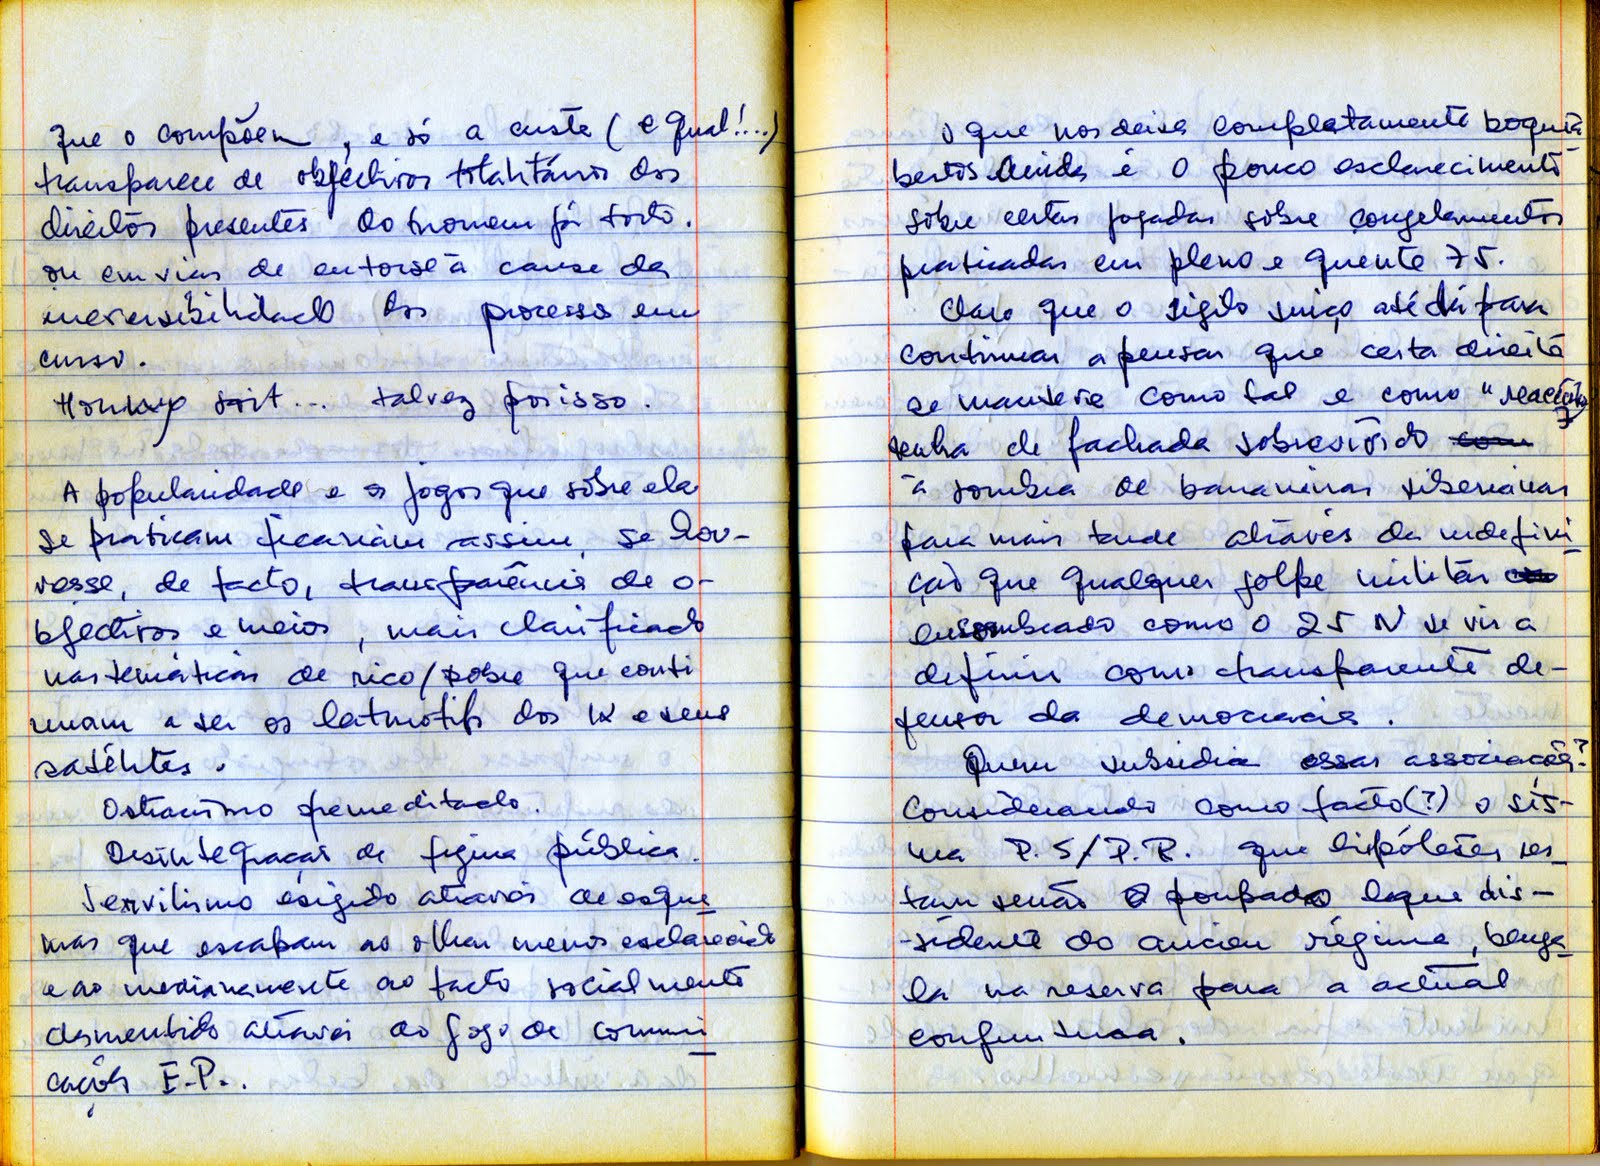 que o compõem, e só a custo (e qual!...)
transparece de objectivos totalitários dos
direitos presentes do homem já torto.
ou em vias de entorse à causa da
irreversibilidade dos processos em
curso.
soit... talvez por isso.
A popularidade e os jogos que sôbre ela
se praticam ficariam assim, se hou-
vesse, de facto, transparência de o-
bjectivos e meios, mais clarificado
nas temáticas de rico/pobre que conti
nuam a ser os leitmotifs dos e seus
satélites.
Ostracismo premeditado.
Desintegração de figura pública.
Servilismo exigido através de esque_
mas que escapam ao olhar menos esclarecido
e ao medianamente ao facto socialmente
desmentido através do jogo de comuni_
cações E.P..
O que nos deixa completamente boquia_
bertos ainda é o pouco esclarecimento
sôbre certas jogadas sôbre congelamentos
praticadas em pleno e quente 75.
Claro que o sigilo suiço até dá para
continuar a pensar que certa direita
se manteve como tal e como "
tenha de fachada sobrevivido com
à sombra de bananeiras siberianas
para mais tarde através da redefini_
ção que qualquer golpe militar
ensombrado como o 25 N se vir a
definir como transparente de-
fensor da democracia.
Quem subsidia essas associações?
Considerando como facto(?) o sis-
ma P.S/P.R. que hipóteses res_
tam senão o poupado leque dis-
-sidente do ancien régime, benga_
la na reserva para a actual
conjuntura.